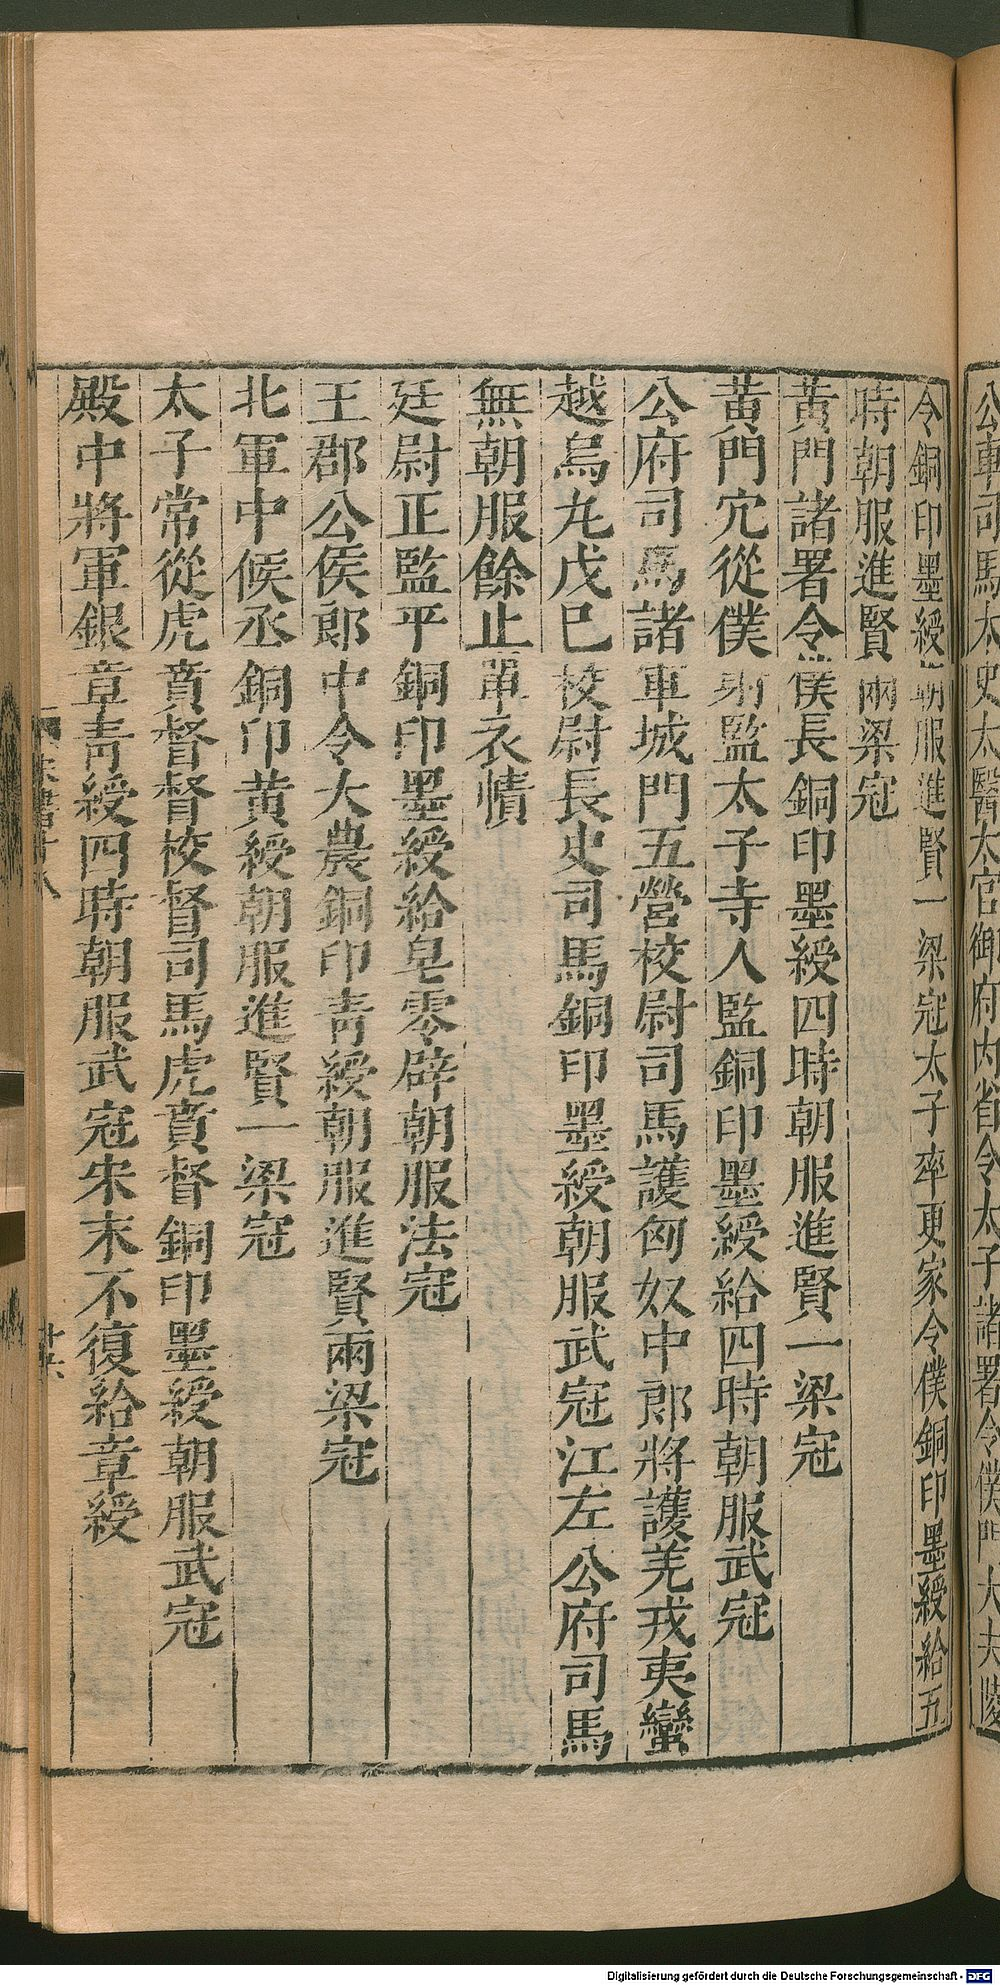 公車司馬太史太醫太官御府內省令太子諸署令僕門大夫陵
令銅印墨綬朝服進賢一梁冠太子率更家令僕銅印墨綬給五
時朝服進賢兩梁冠
黃門諸署令僕長銅印墨綬四時朝服進賢一梁冠
黃門宂從僕射監太子寺人監銅印墨綬給四時朝服武冠
公府司馬諸軍城門五營校尉司馬護匈奴中郎將護羌戎夷蠻
越烏丸戊巳校尉長史司馬銅印墨綬朝服武冠江左公府司馬
無朝服餘止單衣幘
廷尉正監平銅印墨綬給皂零辟朝服法冠
王郡公侯郎中令大農銅印青綬朝服進賢兩梁冠
北軍中候丞銅印黃綬朝服進賢一梁冠
太子常從虎賁督督校督司馬虎賁督銅印墨綬朝服武冠
殿中將軍銀章青綬四時朝服武冠宋末不復給章綬
Digitalisierung gefördert durch die Deutsche Forschungsgemeinschaft - DFG